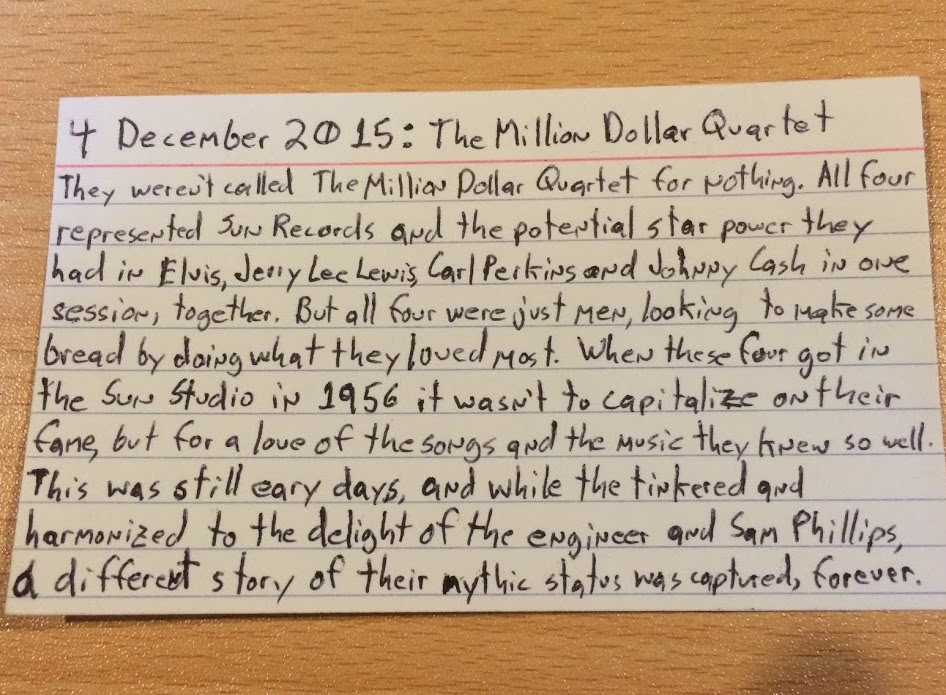 4 December 2015: The Million Dollar Quartet
They weren't called The Million Dollar Quartet for nothing. All four
represented Sun Records and the potential star power they
had in Elvis, Jerry Lee Lewis, Carl Perkins and Johnny Cash in one
session, together. But all four were just men, looking to make some
bread by doing what they loved most. When these four got in
the Sun Studio in 1956 it wasn't to capitalize on their
fame, but for a love of the songs and the music they knew so well.
This was still eary days, and while the tinkered and
harmonized to the delight of the engineer and Sam Phillips,
a different story of their mythic status was captured, forever.